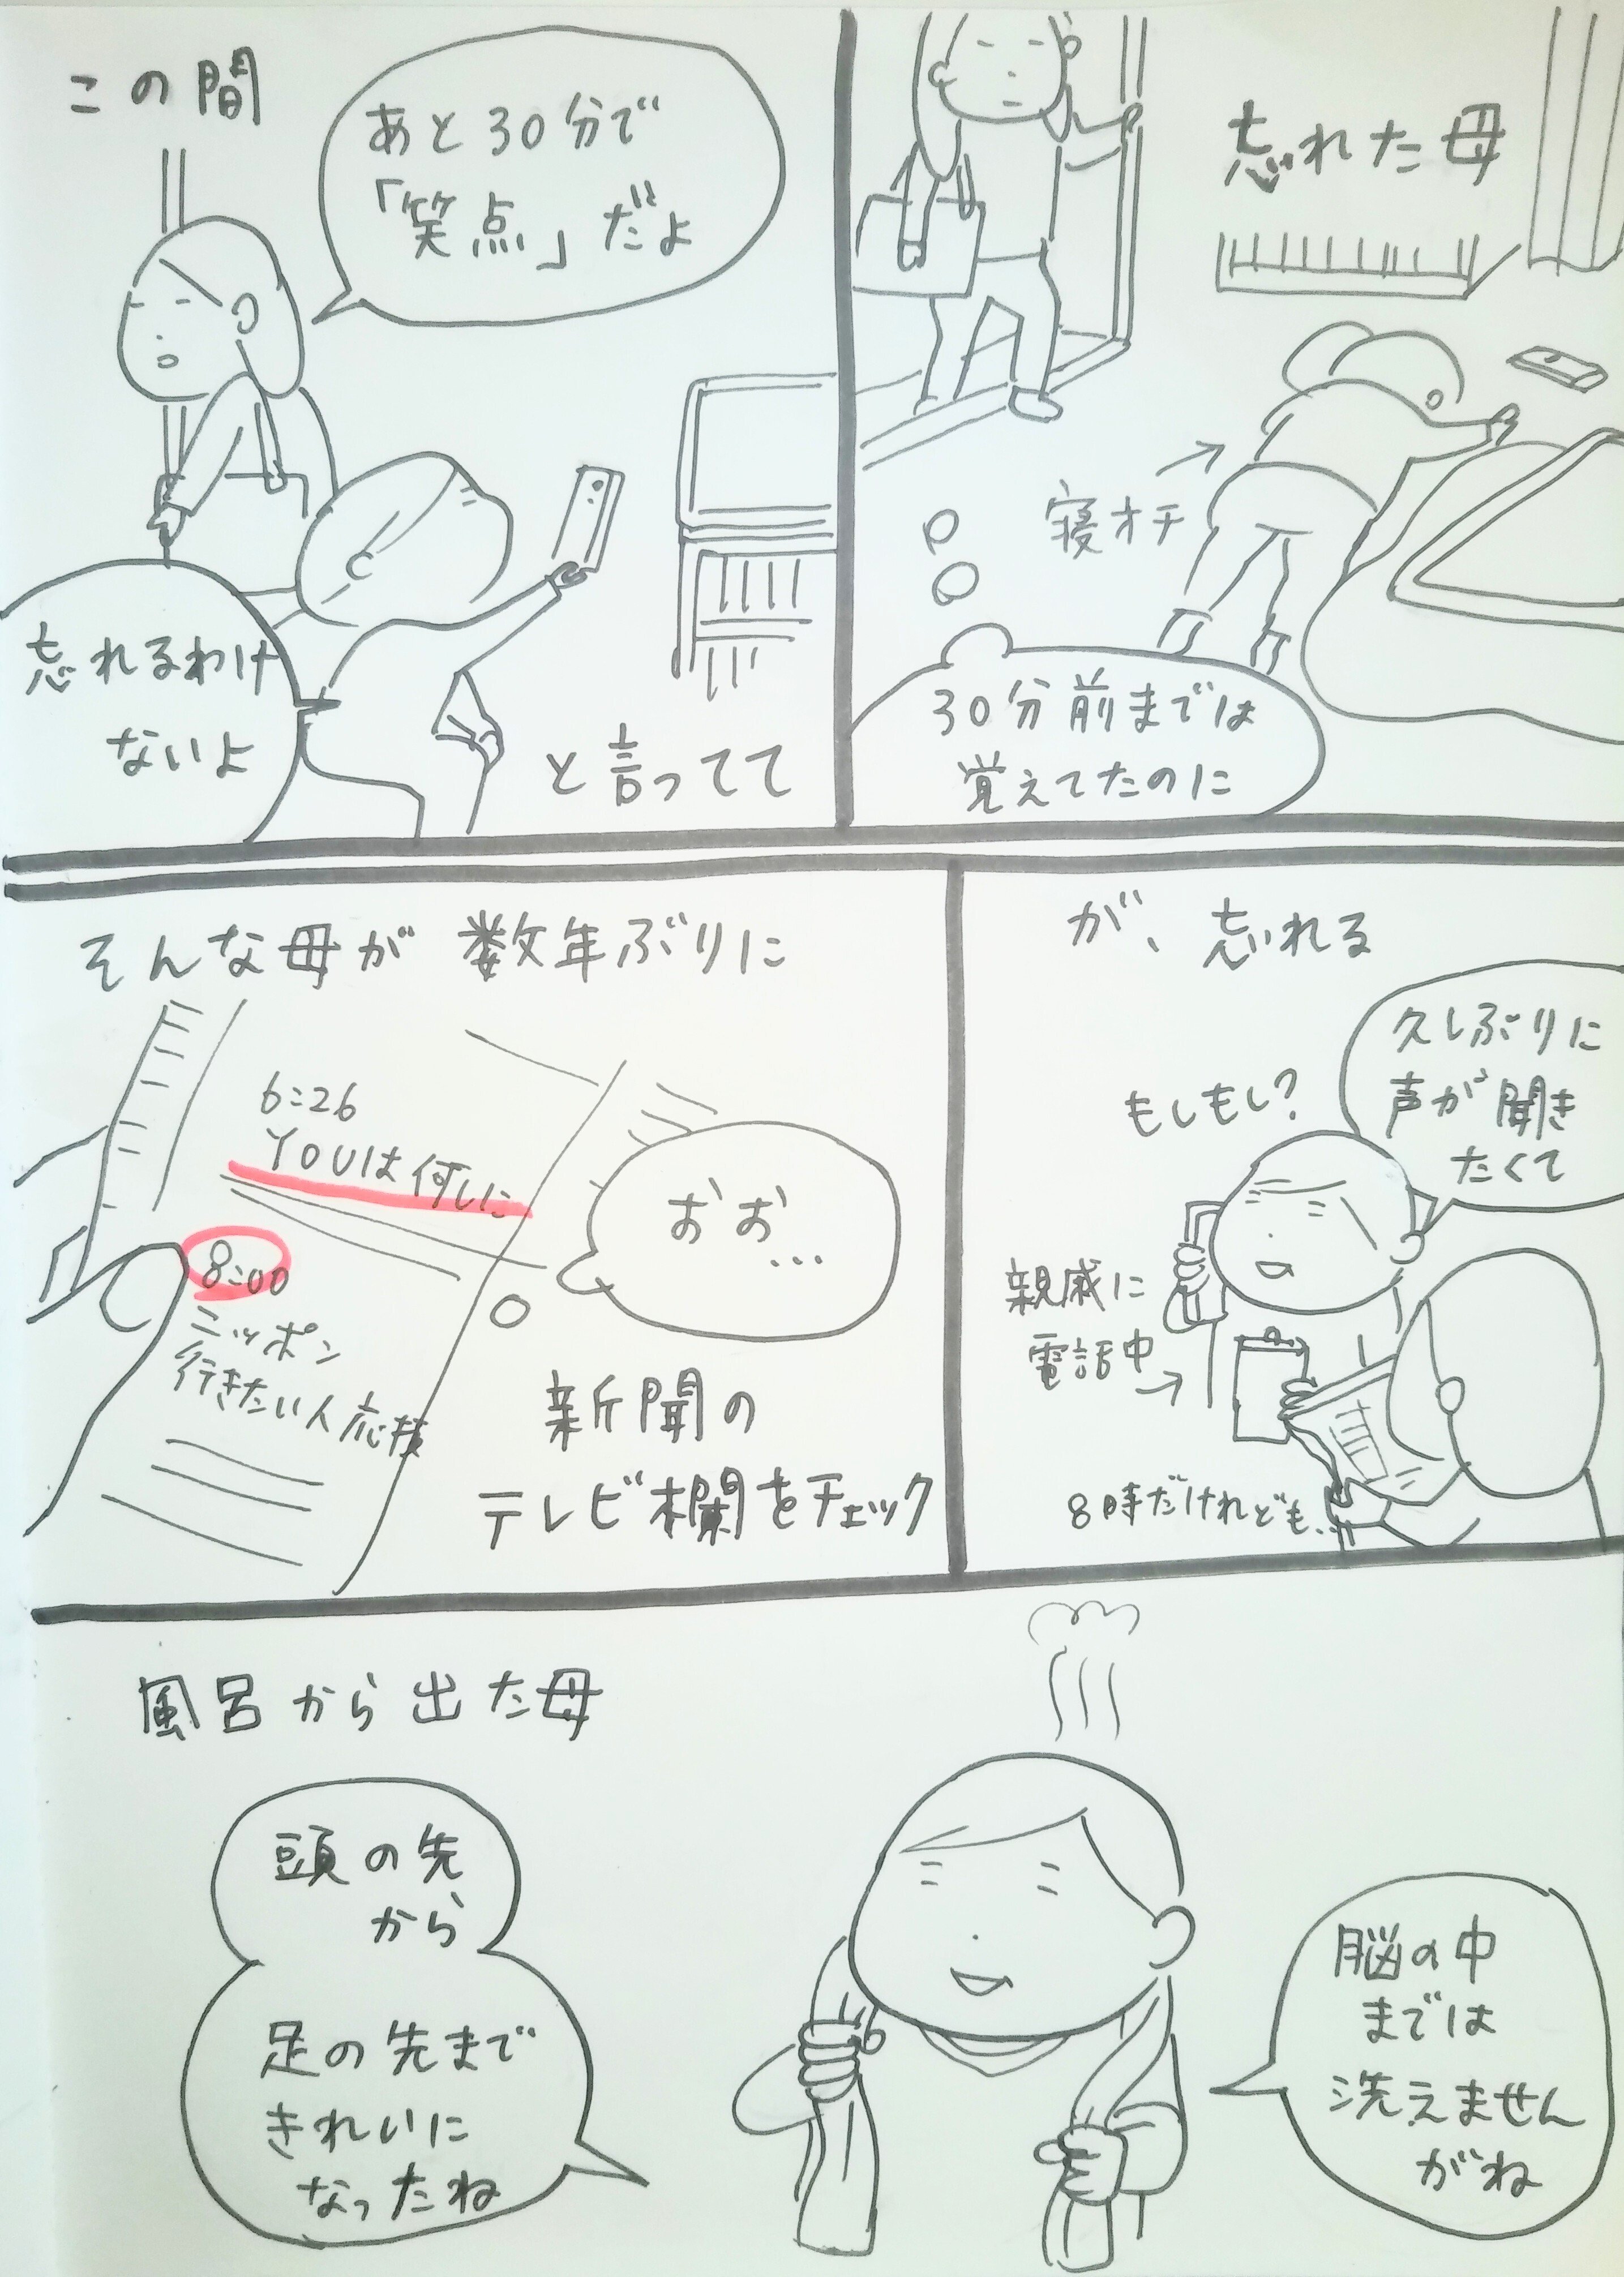 この間
あと30分で
「笑点」だよ
忘れるわけ
ないよ
と言ってて
忘れた母
寝オチ
30分前までは
覚えてたのに
そんな母が 数年ぶりに
6:26
YOUは何しに
8:00
ニッポン
行きたい人応援
おお…
新聞の
テレビ欄をチェック
が、忘れる
久しぶりに
声が聞き
たくて
もしもし?
親戚に
電話中
8時だけれども…
風呂から出た母
頭の先
から
足の先まで
きれいに
なったね
脳の中
までは
洗えません
がね